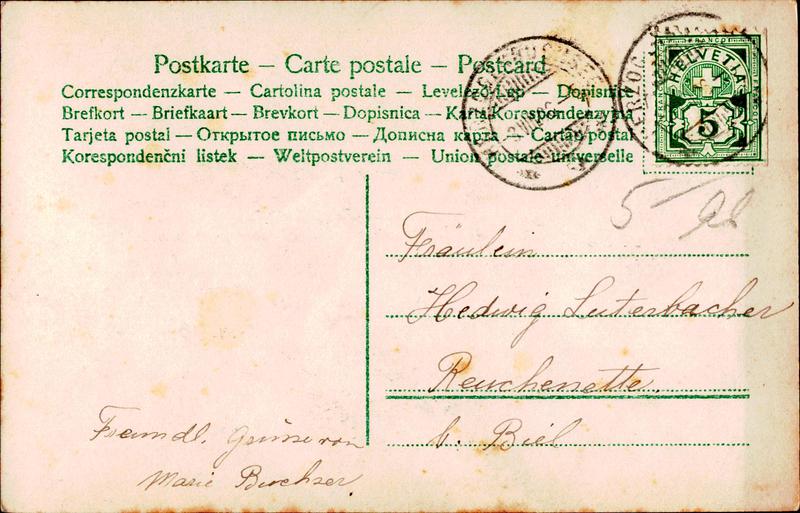 Postkarte – Carte postale – Postcard
Correspondenzkarte — Cartolina postale — Levelező-Lap — Dopisnice
Brefkort — Briefkaart — Brevkort — Dopisnica — Karta Korespondenzyjna
Tarjeta postal — Открытое письмо — Дописна карта — Cartão postal
Korespondenčni listek — Weltpostverein — Union postale universelle
FRANCO
HELVETIA
5
5
Fräulein
Hedwig Luterbacher
Reuchenette
b. Biel
Freundl. Grüsse von
Marie Buchser.